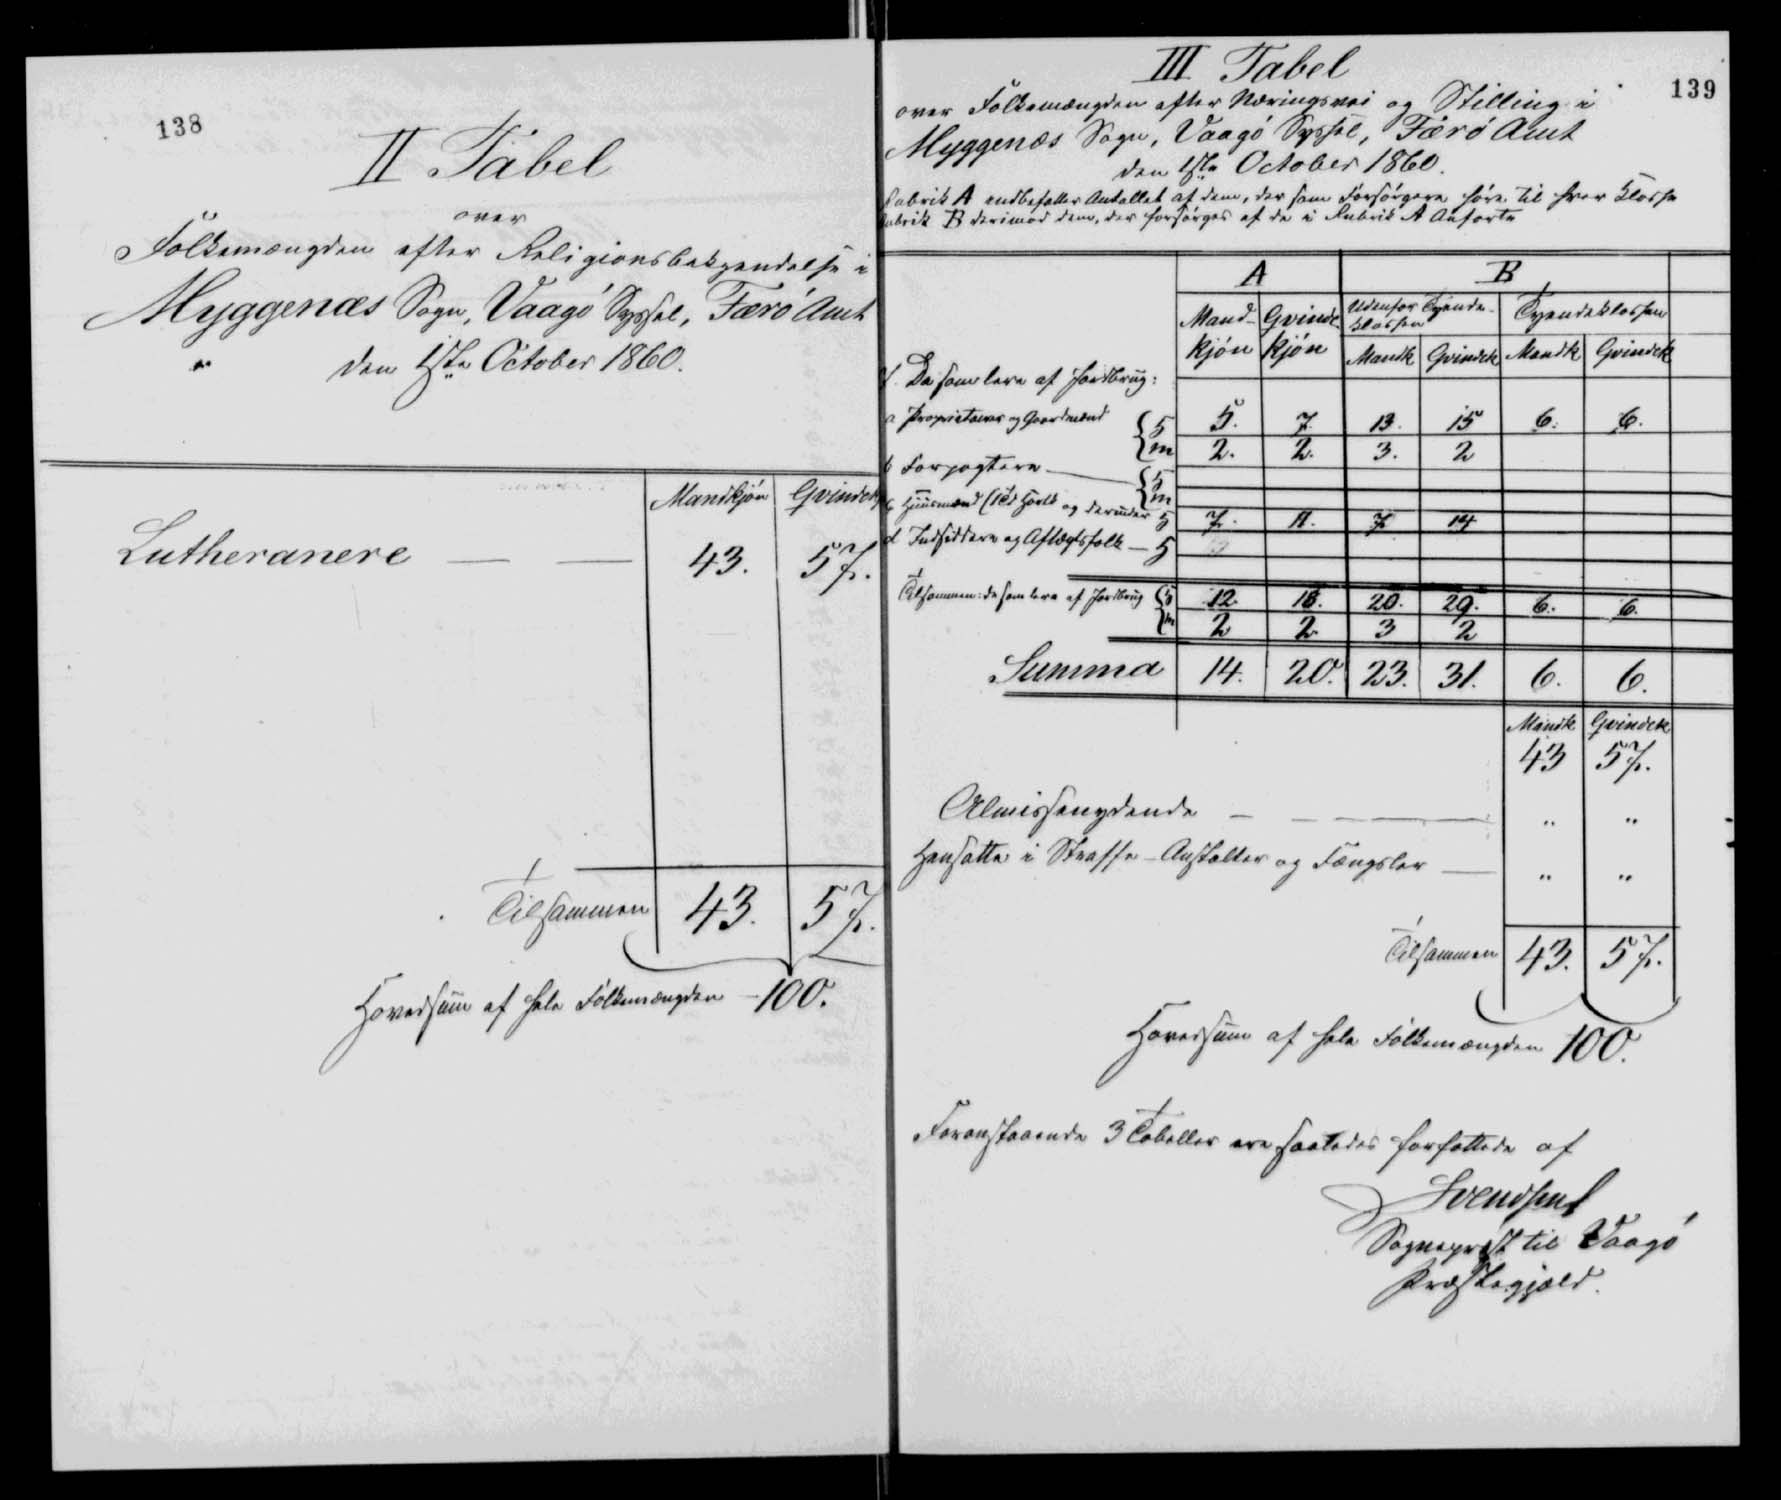 138
II Tabel
over
Folkemængden efter Religionsbekjendelse i
Myggenæs Sogn, Vaagö Syssel, Færö Amt
den 1ste October 1860.
Mandkjön Qvindek
Lutheranere — — 43. 57.
Tilsammen 43. 57.
Hovedsum af hele Folkemængden — 100.
139
III Tabel
over Folkemængden efter Næringsvei og Stilling i
Myggenæs Sogn, Vaagö Syssel, Færö Amt
den 1ste October 1860.
Rubrik A indbefatter Antallet af dem, der som Forsörgere höre til hver Klasse
Rubrik B derimod dem, der forsörges af de i Rubrik A Anförte
A B
Mand- Qvinde Udenfor Tyende- Tyendeklassen
klassen
kjön kjön Mandk Qvindek Mandk Qvindek
De som leve af Jordbrug:
a Proprietairer og Gaardmænd { 5 5. 7. 13. 15 6. 6.
m 2. 2. 3. 2
b Forpagtere — { 5
m
c Huusmænd (1Td Hartk og derunder 5 7. 11. 7 14
d Indsiddere og Aftægtsfolk — 5
Tilsammen: de som leve af Jordbrug { 5 12. 18. 20. 29. 6. 6.
m 2 2 3 2
Summa 14. 20. 23. 31. 6. 6.
Mandk Qvindek
43 57.
Almissenydende — — — " "
Hensatte i Straffe-Anstalter og Fængsler — " "
Tilsammen 43. 57.
Hovedsum af hele Folkemængden 100.
Foranstaaende 3 Tabeller ere saaledes forfattede af
Svendsen
Sognepræst til Vaagö
Præstegjæld.